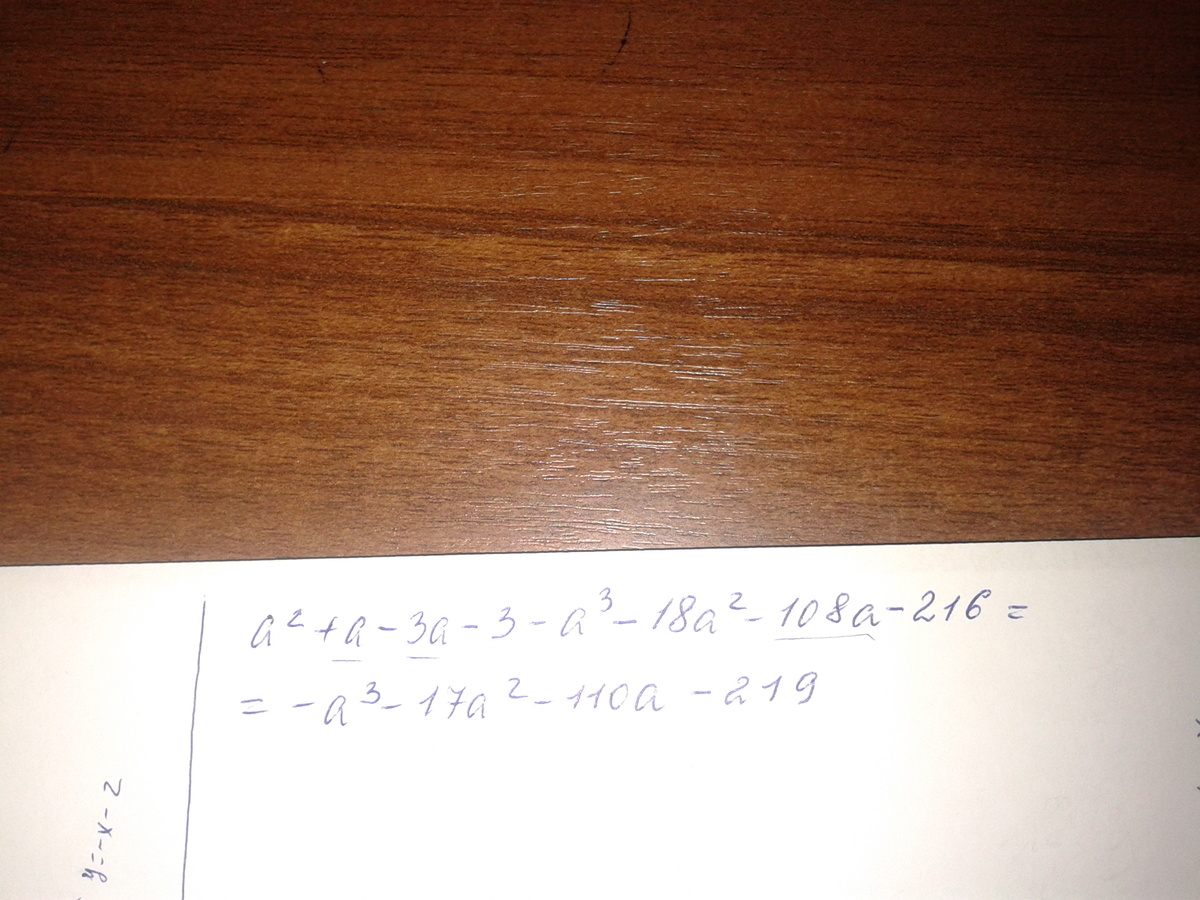 a² + a - 3a - 3 - a³ - 18a² - 108a - 216 =
= - a³ - 17a² - 110a - 219
y = -x - 2